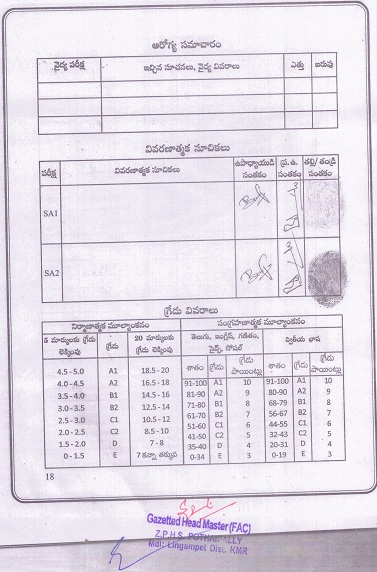 ఆరోగ్య సమాచారం
వైద్య పరీక్ష ఇచ్చిన సూచనలు, వైద్య వివరాలు ఎత్తు బరువు
వివరణాత్మక సూచికలు
పరీక్ష వివరణాత్మక సూచికలు ఉపాధ్యాయుడి సంతకం ప్ర.ఉ. సంతకం తల్లి/ తండ్రి సంతకం
SA1
SA2
గ్రేడు వివరాలు
నిర్మాణాత్మక మూల్యాంకనం సంగ్రహణాత్మక మూల్యాంకనం
5 మార్కులకు గ్రేడు లెక్కింపు గ్రేడు 20 మార్కులకు గ్రేడు లెక్కింపు తెలుగు, ఇంగ్లీష్, గణితం, సైన్స్, సోషల్ ద్వితీయ భాష
శాతం గ్రేడు గ్రేడు పాయింట్లు శాతం గ్రేడు గ్రేడు పాయింట్లు
4.5 - 5.0 A1 18.5 - 20 91-100 A1 10 91-100 A1 10
4.0 - 4.5 A2 16.5 - 18 81-90 A2 9 80-90 A2 9
3.5 - 4.0 B1 14.5 - 16 71-80 B1 8 68-79 B1 8
3.0 - 3.5 B2 12.5 - 14 61-70 B2 7 56-67 B2 7
2.5 - 3.0 C1 10.5 - 12 51-60 C1 6 44-55 C1 6
2.0 - 2.5 C2 8.5 - 10 41-50 C2 5 32-43 C2 5
1.5 - 2.0 D 7 - 8 35-40 D 4 20-31 D 4
0 - 1.5 E 7 కన్నా తక్కువ 0-34 E 3 0-19 E 3
18
Gazetted Head Master (FAC)
Z.P.H.S. POTHAI LLY
Mdl: Lingampet Dist. KMR